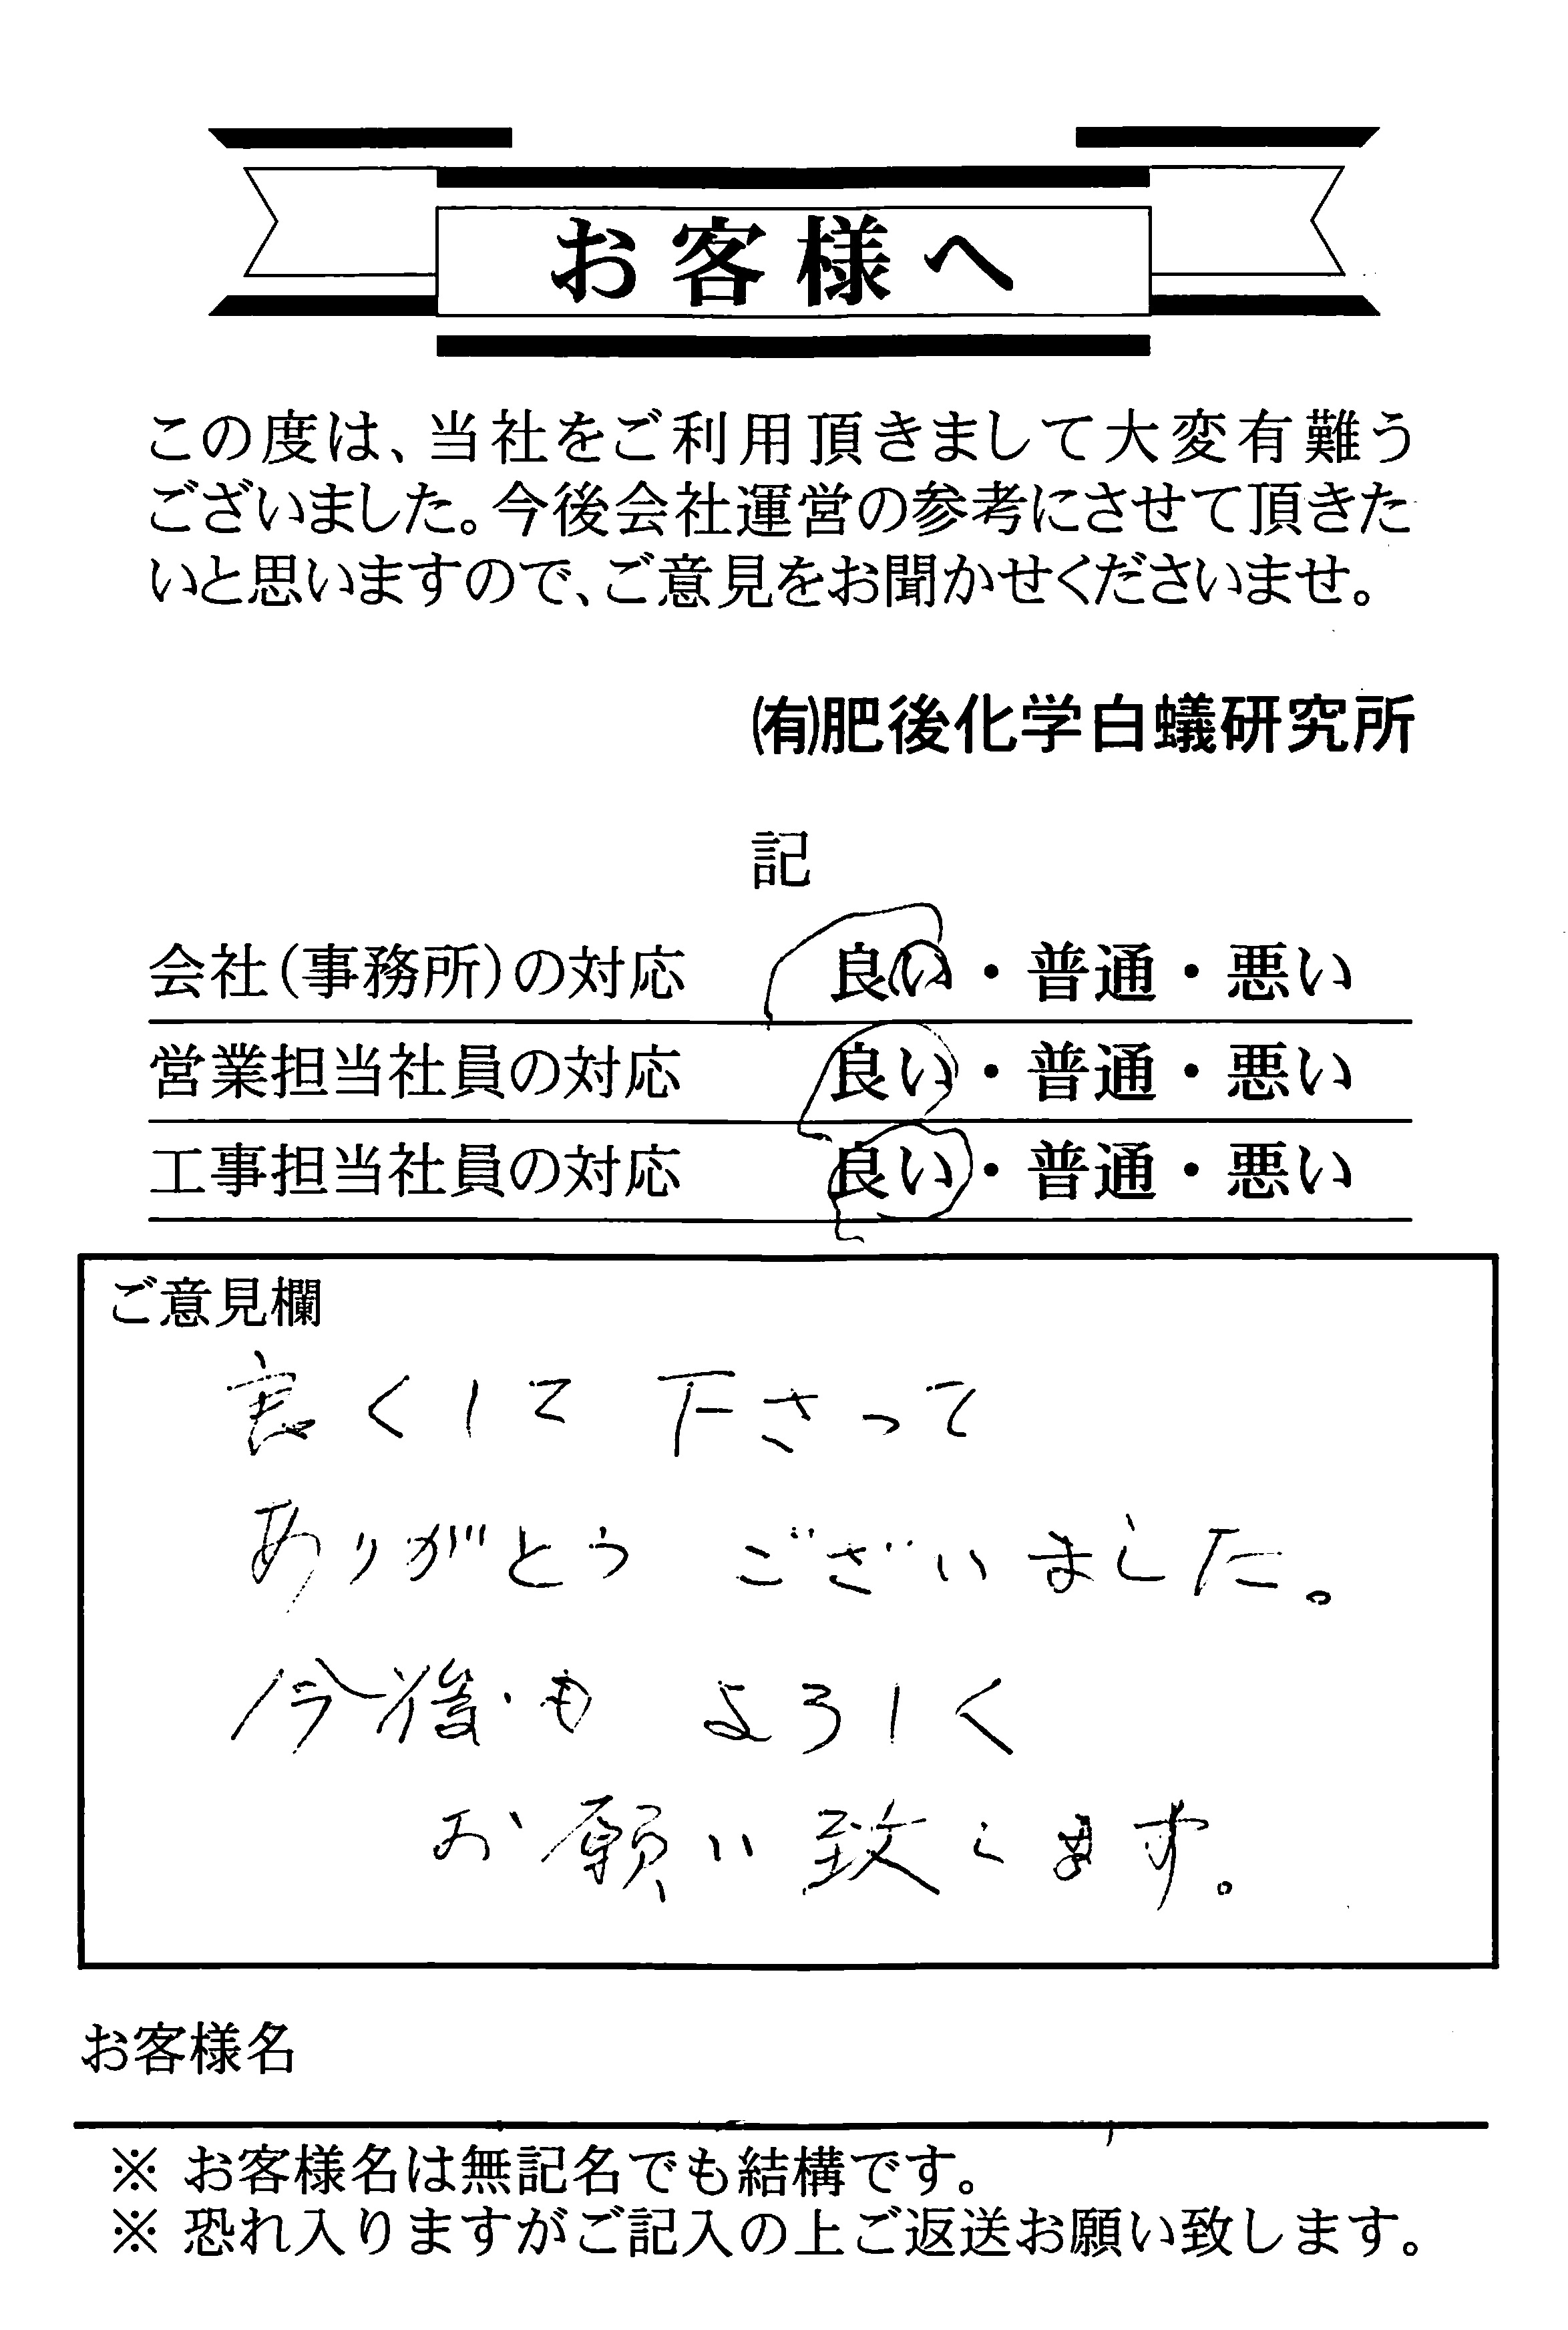 お客様へ
この度は、当社をご利用頂きまして大変有難う
ございました。今後会社運営の参考にさせて頂きた
いと思いますので、ご意見をお聞かせくださいませ。
㈲肥後化学白蟻研究所
記
会社（事務所）の対応 良い・普通・悪い
営業担当社員の対応 良い・普通・悪い
工事担当社員の対応 良い・普通・悪い
ご意見欄
良くして下さって
ありがとう ございました。
今後も よろしく
お願い致します。
お客様名
※ お客様名は無記名でも結構です。
※ 恐れ入りますがご記入の上ご返送お願い致します。